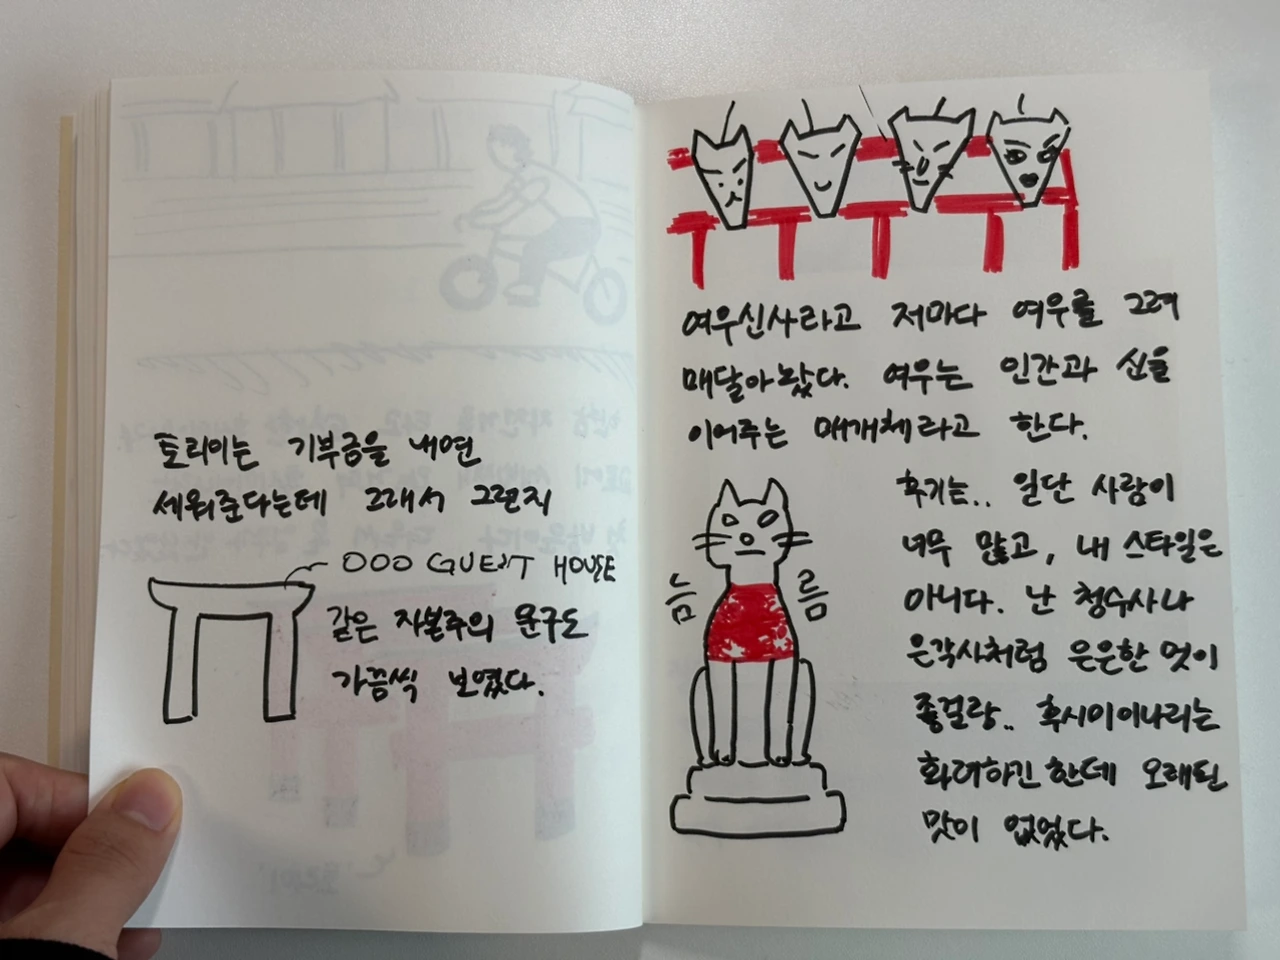 토리이는 기부금을 내면
세워준다는데 그래서 그런지
OOO GUEST HOUSE
같은 자본주의 문구도
가끔씩 보였다.
여우신사라고 저마다 여우를 그려
매달아놨다. 여우는 인간과 신을
이어주는 매개체라고 한다.
늠 름
후기는.. 일단 사람이
너무 많고, 내 스타일은
아니다. 난 청수사나
은각사처럼 은은한 멋이
좋걸랑.. 후시미이나리는
화려하긴 한데 오래된
맛이 없었다.